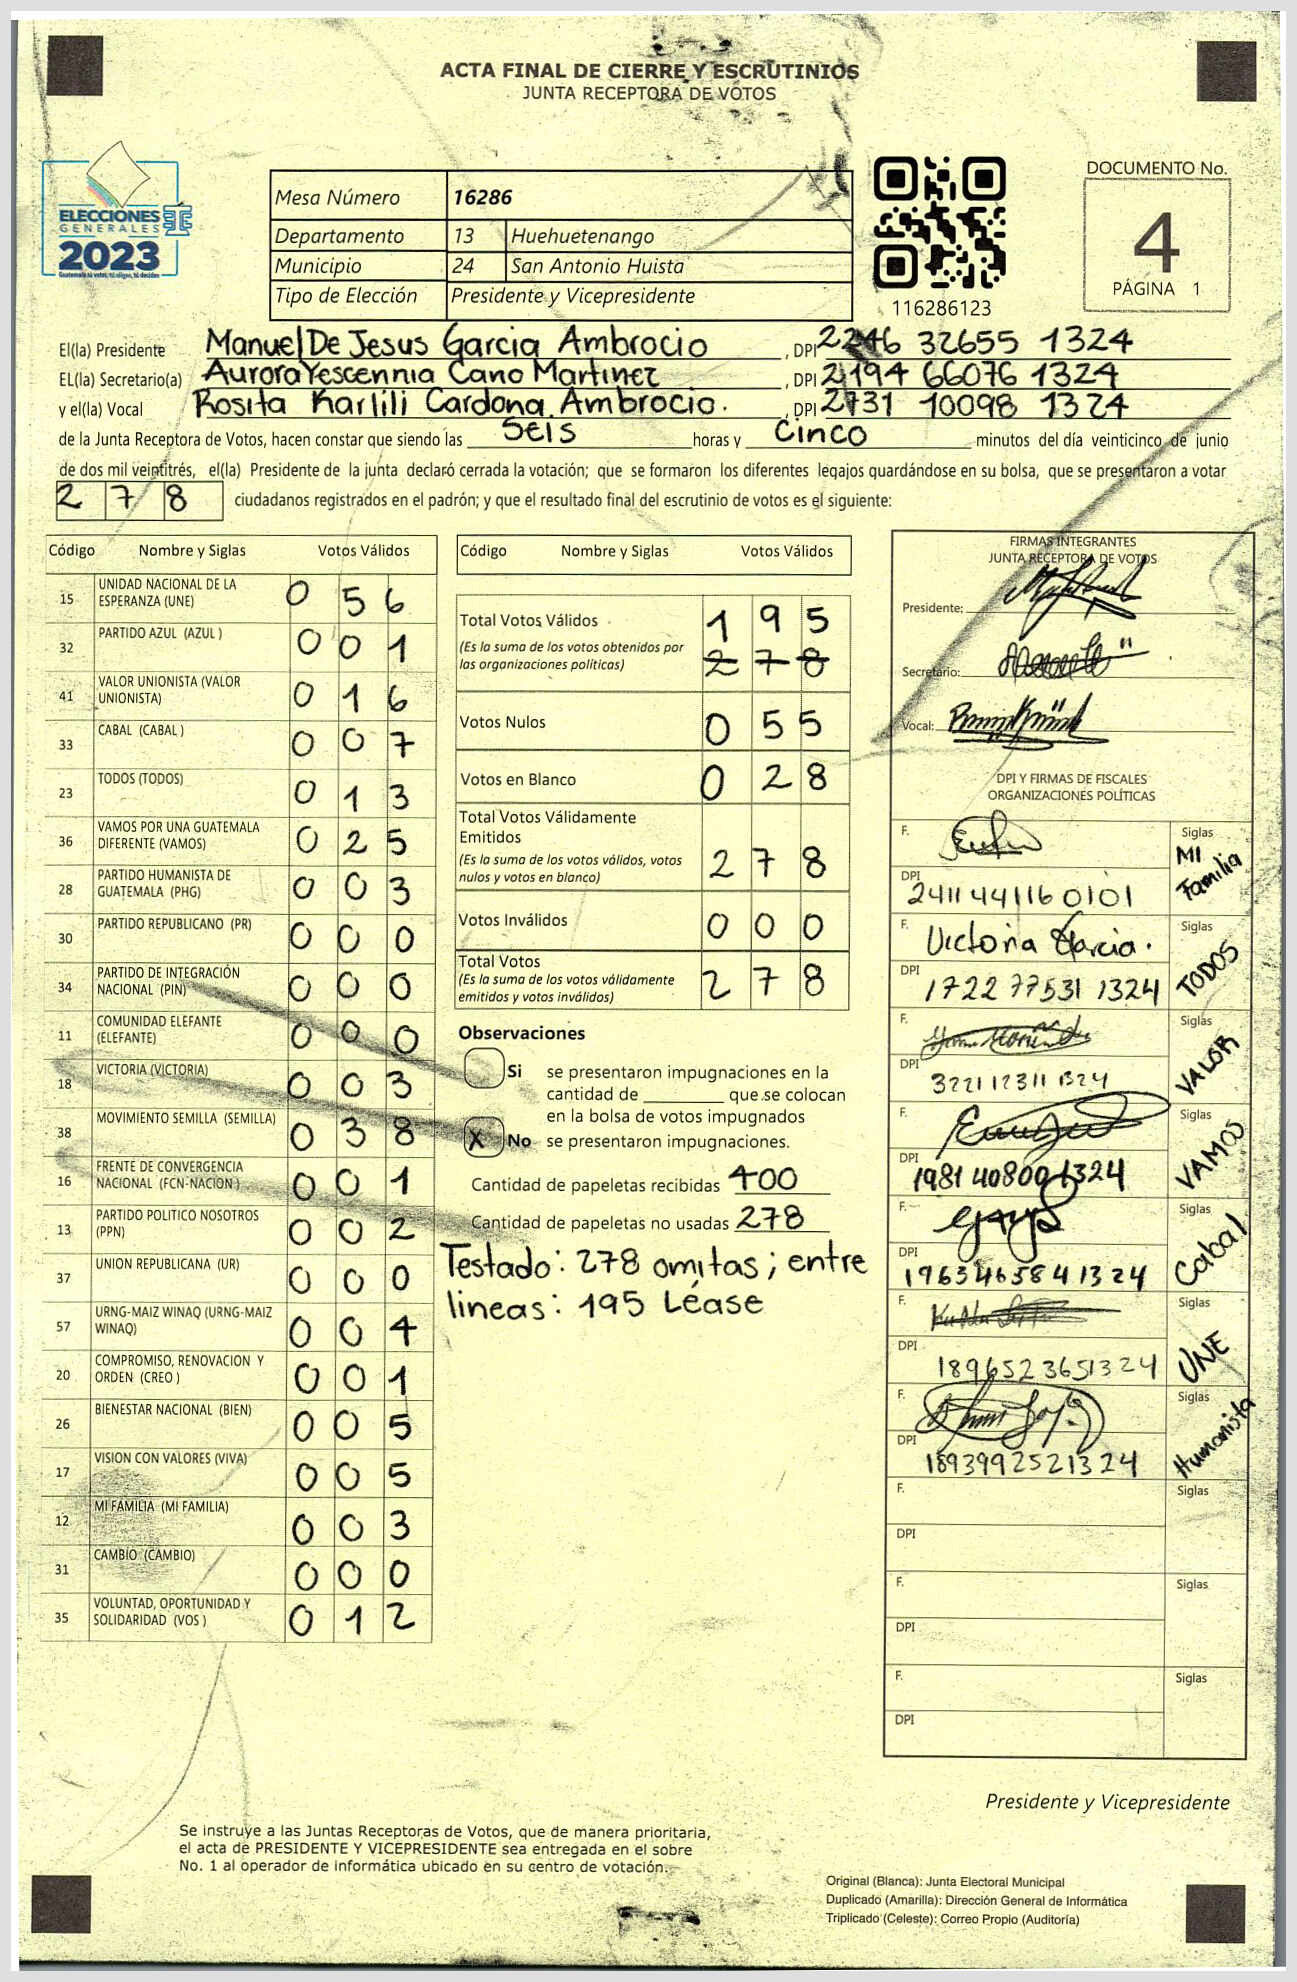 ACTA FINAL DE CIERRE Y ESCRUTINIOS
JUNTA RECEPTORA DE VOTOS
ELECCIONES
GENERALES
2023
Guatemala tú votas, tú eliges, tú decides
Mesa Número 16286
Departamento 13 Huehuetenango
Municipio 24 San Antonio Huista
Tipo de Elección Presidente y Vicepresidente
116286123
DOCUMENTO No.
4
PÁGINA 1
El(la) Presidente Manuel De Jesus Garcia Ambrocio , DPI 2246 32655 1324
EL(la) Secretario(a) Aurora Yescennia Cano Martinez , DPI 2194 66076 1324
y el(la) Vocal Rosita Karlili Cardona Ambrocio. , DPI 2731 10098 1324
de la Junta Receptora de Votos, hacen constar que siendo las Seis horas y Cinco minutos del día veinticinco de junio
de dos mil veintitrés, el(la) Presidente de la junta declaró cerrada la votación; que se formaron los diferentes legajos quardándose en su bolsa, que se presentaron a votar
278 ciudadanos registrados en el padrón; y que el resultado final del escrutinio de votos es el siguiente:
Código Nombre y Siglas Votos Válidos
15 UNIDAD NACIONAL DE LA ESPERANZA (UNE) 0 5 6
32 PARTIDO AZUL (AZUL ) 0 0 1
41 VALOR UNIONISTA (VALOR UNIONISTA) 0 1 6
33 CABAL (CABAL ) 0 0 7
23 TODOS (TODOS) 0 1 3
36 VAMOS POR UNA GUATEMALA DIFERENTE (VAMOS) 0 2 5
28 PARTIDO HUMANISTA DE GUATEMALA (PHG) 0 0 3
30 PARTIDO REPUBLICANO (PR) 0 0 0
34 PARTIDO DE INTEGRACIÓN NACIONAL (PIN) 0 0 0
11 COMUNIDAD ELEFANTE (ELEFANTE) 0 0 0
18 VICTORIA (VICTORIA) 0 0 3
38 MOVIMIENTO SEMILLA (SEMILLA) 0 3 8
16 FRENTE DE CONVERGENCIA NACIONAL (FCN-NACION ) 0 0 1
13 PARTIDO POLITICO NOSOTROS (PPN) 0 0 2
37 UNION REPUBLICANA (UR) 0 0 0
57 URNG-MAIZ WINAQ (URNG-MAIZ WINAQ) 0 0 4
20 COMPROMISO, RENOVACION Y ORDEN (CREO ) 0 0 1
26 BIENESTAR NACIONAL (BIEN) 0 0 5
17 VISION CON VALORES (VIVA) 0 0 5
12 MI FAMILIA (MI FAMILIA) 0 0 3
31 CAMBIO (CAMBIO) 0 0 0
35 VOLUNTAD, OPORTUNIDAD Y SOLIDARIDAD (VOS ) 0 1 2
Código Nombre y Siglas Votos Válidos
Total Votos Válidos 1 9 5
(Es la suma de los votos obtenidos por
las organizaciones políticas) 2 7 8
Votos Nulos 0 5 5
Votos en Blanco 0 2 8
Total Votos Válidamente
Emitidos
(Es la suma de los votos válidos, votos
nulos y votos en blanco) 2 7 8
Votos Inválidos 0 0 0
Total Votos
(Es la suma de los votos válidamente
emitidos y votos inválidos) 2 7 8
Observaciones
Si se presentaron impugnaciones en la
cantidad de ________ que se colocan
en la bolsa de votos impugnados
X No se presentaron impugnaciones.
Cantidad de papeletas recibidas 400
Cantidad de papeletas no usadas 278
Testado: 278 omitas; entre
lineas: 195 Léase
FIRMAS INTEGRANTES
JUNTA RECEPTORA DE VOTOS
Presidente:
Secretario:
Vocal:
DPI Y FIRMAS DE FISCALES
ORGANIZACIONES POLÍTICAS
F. Siglas
MI Familia
DPI 2411 44116 0101
F. Victoria Garcia. Siglas
TODOS
DPI 1722 77531 1324
F. Siglas
VALOR
DPI 3221 12311 1324
F. Siglas
VAMOS
DPI 1981 40800 1324
F. Siglas
Cabal
DPI 1963 46584 1324
F. Siglas
UNE
DPI 1896523651324
F. Siglas
Humanista
DPI 1893992521324
F. Siglas
DPI
F. Siglas
DPI
F. Siglas
DPI
Presidente y Vicepresidente
Se instruye a las Juntas Receptoras de Votos, que de manera prioritaria,
el acta de PRESIDENTE Y VICEPRESIDENTE sea entregada en el sobre
No. 1 al operador de informática ubicado en su centro de votación.
Original (Blanca): Junta Electoral Municipal
Duplicado (Amarilla): Dirección General de Informática
Triplicado (Celeste): Correo Propio (Auditoría)